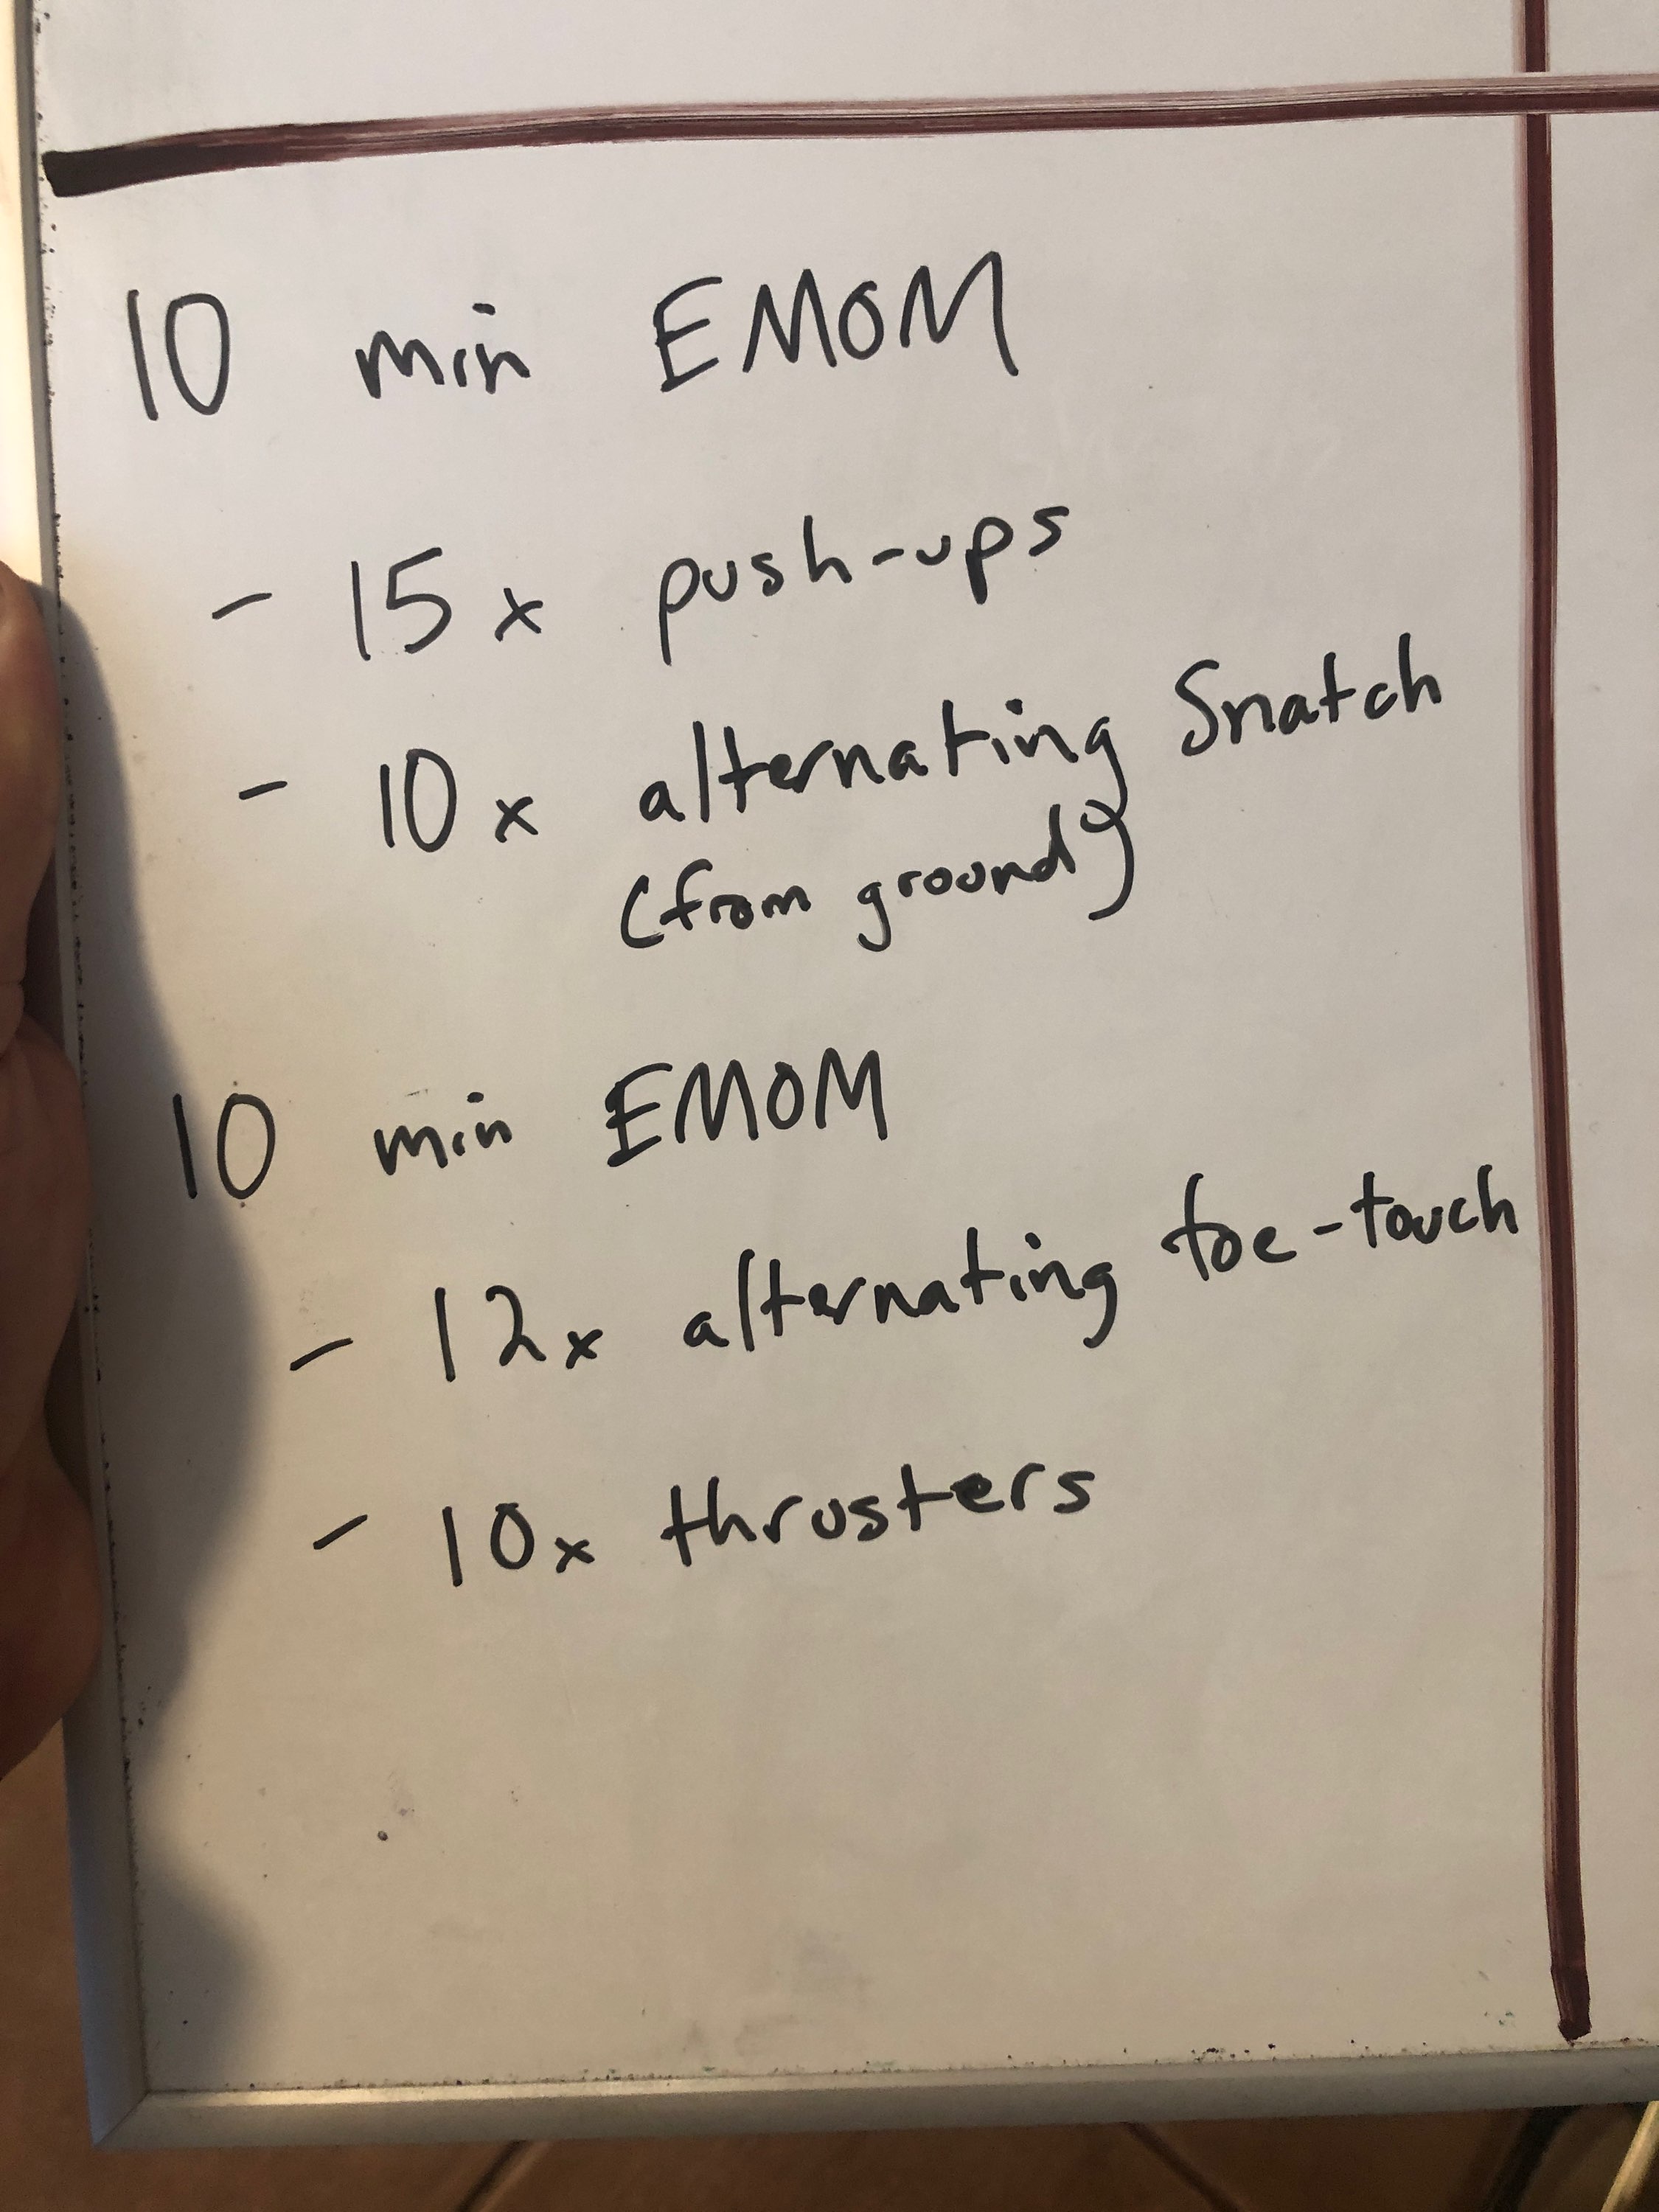 10 min EMOM
- 15x push-ups
- 10x alternating Snatch
(from ground)
10 min EMOM
- 12x alternating toe-touch
- 10x thrusters